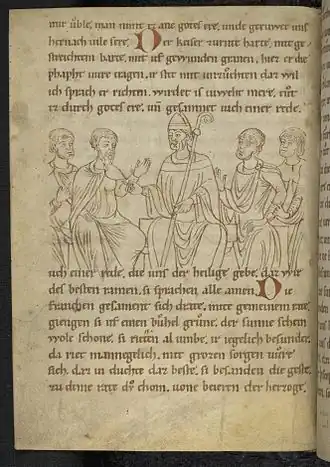 mit ůble, man nimt iz ane gotes ere, unde geruwet uns
hernach vile sere. Der keiser zurnte harte, mit ge
streichtem barte, mit uf gewunden granen, hiez er die
phapht vure tragen, ir sit mit unzuchten daz wil
ich sprach er richten. wirdet is iwiht mere,
iz durch gotes ere, uñ gesamnet iuch einer rede.
uch einer rede, die uns der heilige gebe, daz wir
des besten ramen, si sprachen alle amen. Die
franchen gesament sich drate, mite gemeinem rate
giengen si uf einen bůhel grůne, der sunne schein
wole schone, si rieten al umbe, ir iegelich besunder,
da riet mannegelich, mit grozen sorgen
sich, daz in duchte daz beste, si besanden die geste,
zu deme rate chom, uone beieren der herzoge,